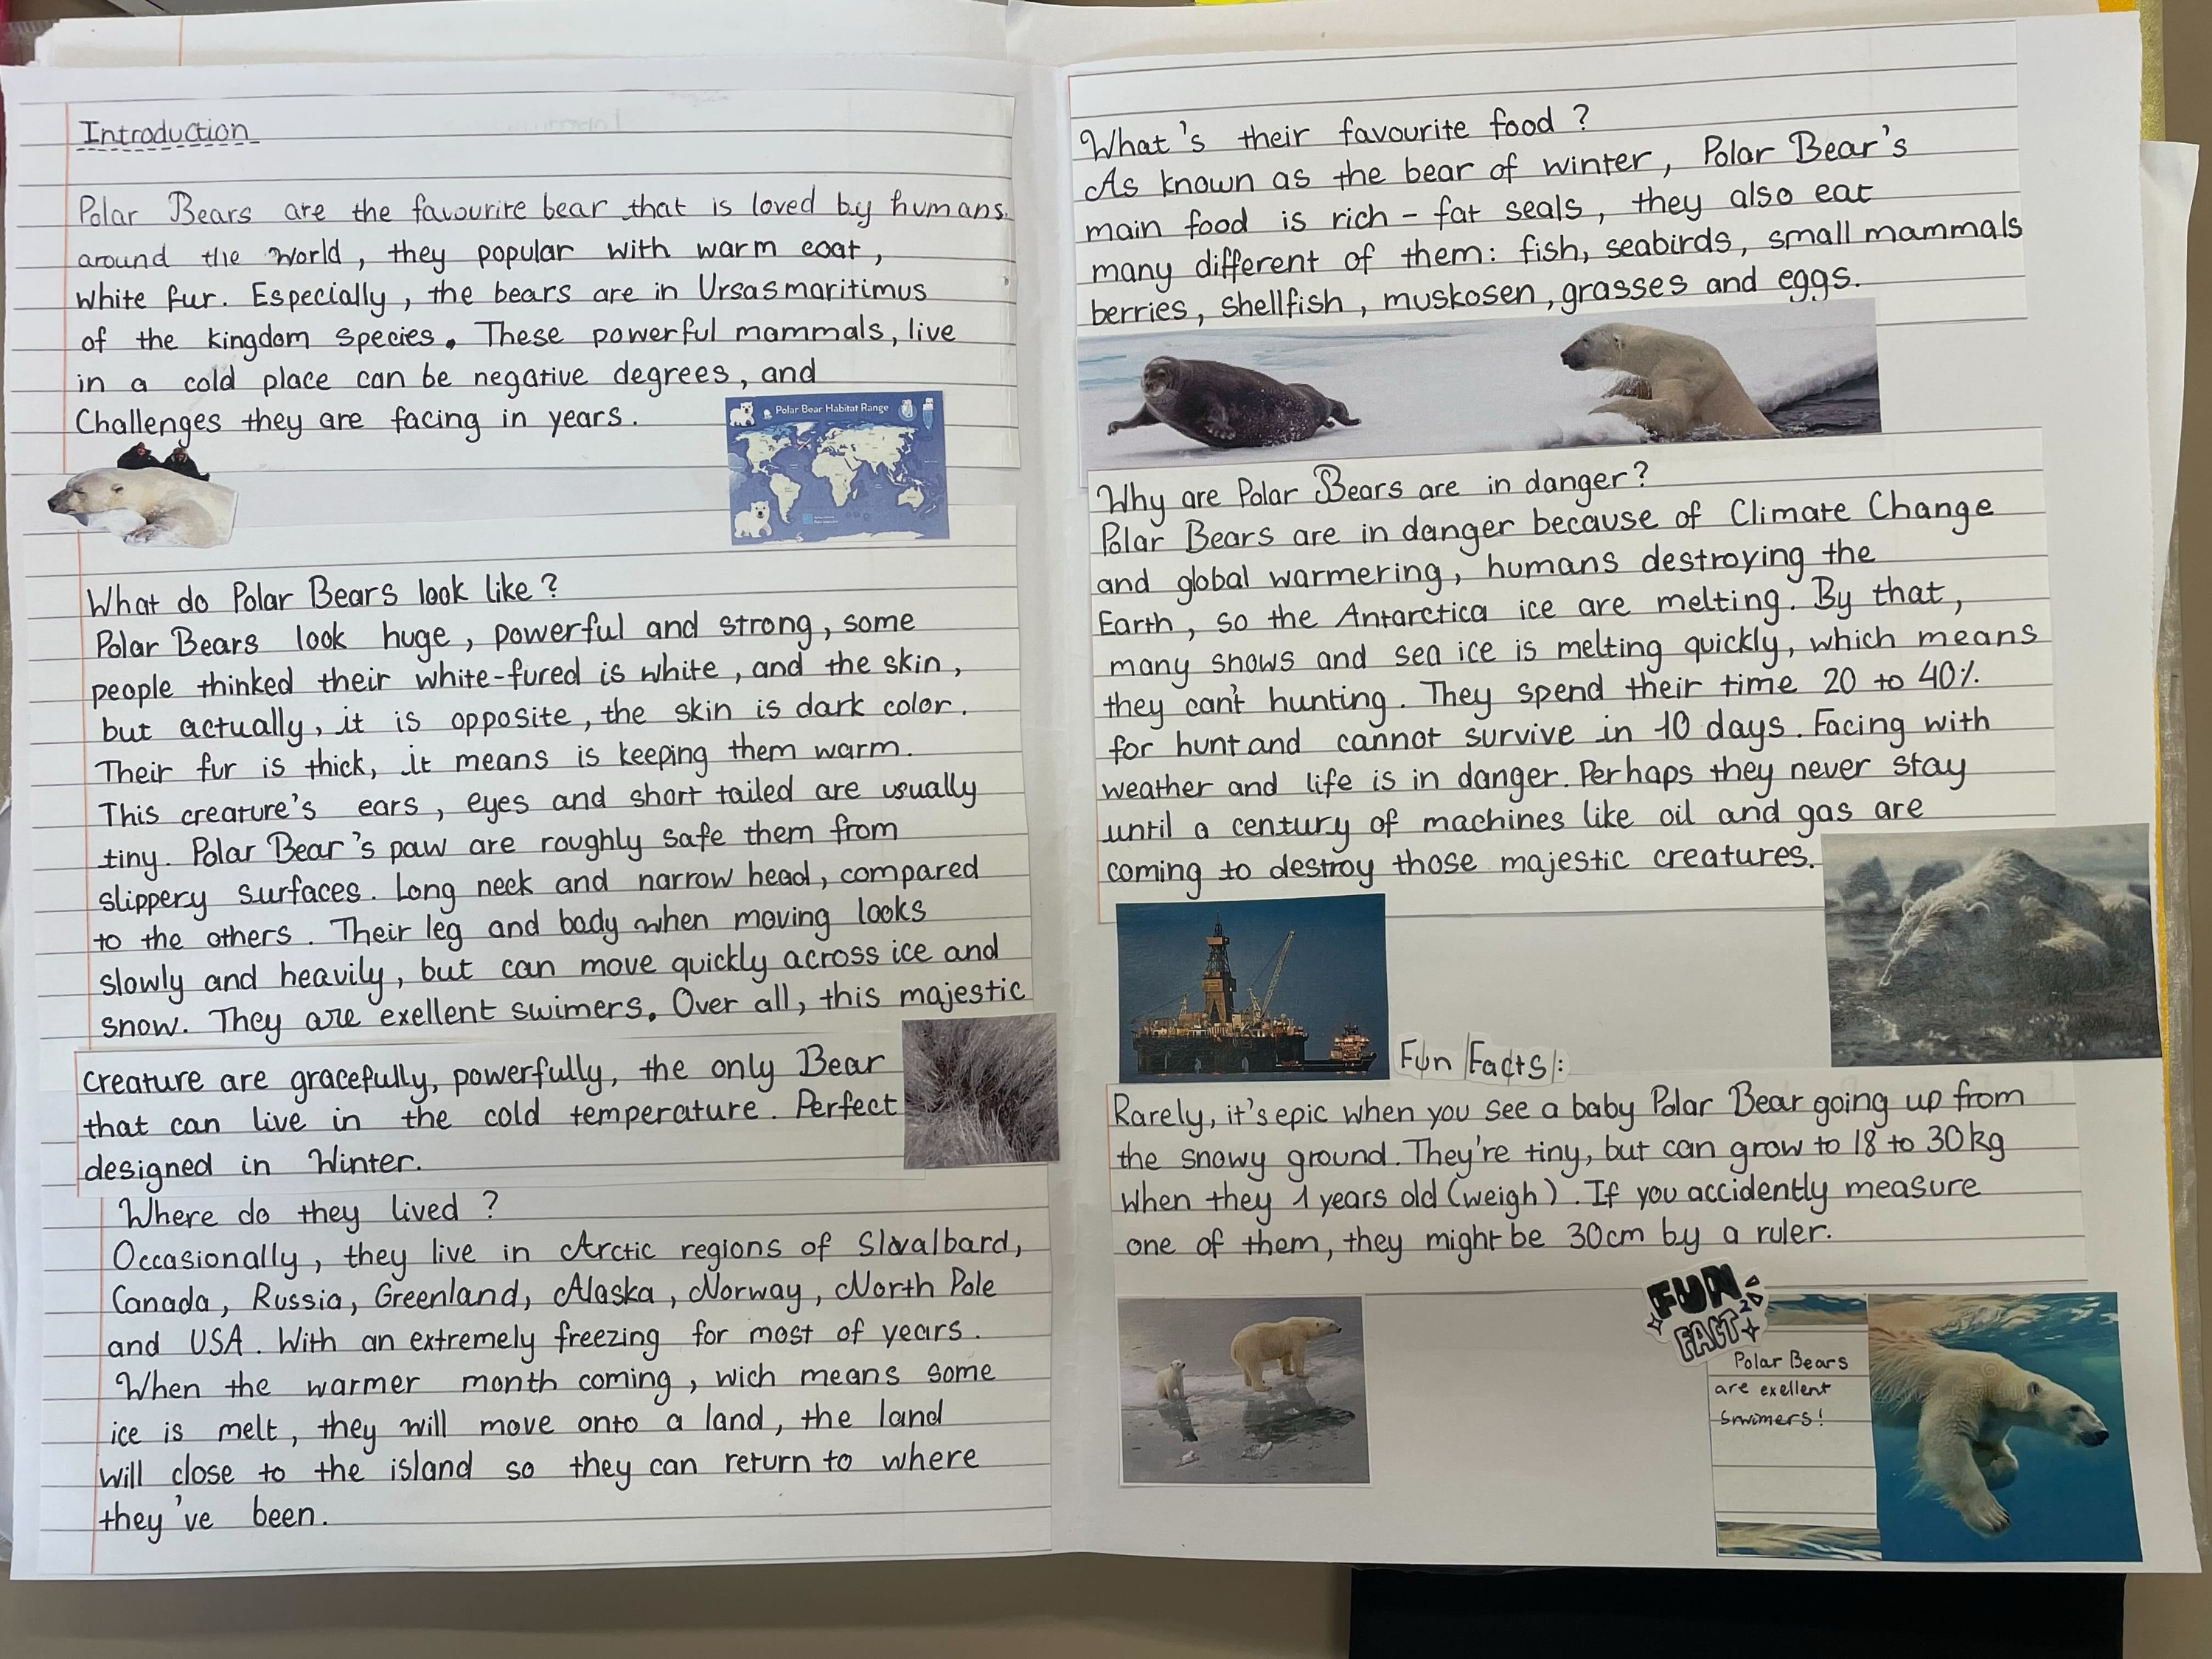 Introduction
Polar Bears are the favourire bear that is loved by humans.
around the world, they popular with warm coat,
white fur. Especially, the bears are in Ursasmaritimus
of the kingdom species. These powerful mammals, live
in a cold place can be negative degrees, and
Challenges they are facing in years.
Polar Bear Habitat Range
What do Polar Bears look like?
Polar Bears look huge, powerful and strong, some
people thinked their white-fured is white, and the skin,
but actually, it is opposite, the skin is dark color.
Their fur is thick, it means is keeping them warm.
This creature's ears, eyes and short tailed are usually
tiny. Polar Bear's paw are roughly safe them from
slippery surfaces. Long neck and narrow head, compared
to the others. Their leg and body when moving looks
slowly and heavily, but can move quickly across ice and
snow. They are exellent swimers. Over all, this majestic
creature are gracefully, powerfully, the only Bear
that can live in the cold temperature. Perfect
designed in Winter.
Where do they lived?
Occasionally, they live in Arctic regions of Slavalbard,
Canada, Russia, Greenland, Alaska, Norway, North Pole
and USA. With an extremely freezing for most of years.
When the warmer month coming, wich means some
ice is melt, they will move onto a land, the land
will close to the island so they can return to where
they've been.
What's their favourite food?
As known as the bear of winter, Polar Bear's
main food is rich-fat seals, they also eat
many different of them: fish, seabirds, small mammals
berries, shellfish, muskosen, grasses and eggs.
Why are Polar Bears are in danger?
Polar Bears are in danger because of Climate Change
and global warmering, humans destroying the
Earth, so the Antarctica ice are melting. By that,
many snows and sea ice is melting quickly, which means
they can't hunting. They spend their time 20 to 40%
for hunt and cannot survive in 10 days. Facing with
weather and life is in danger. Perhaps they never stay
until a century of machines like oil and gas are
coming to destroy those majestic creatures.
Fun Facts:
Rarely, it's epic when you see a baby Polar Bear going up from
the snowy ground. They're tiny, but can grow to 18 to 30kg
when they 1 years old (weigh). If you accidently measure
one of them, they might be 30cm by a ruler.
FUN
FACT
2
Polar Bears
are exellent
swimers!